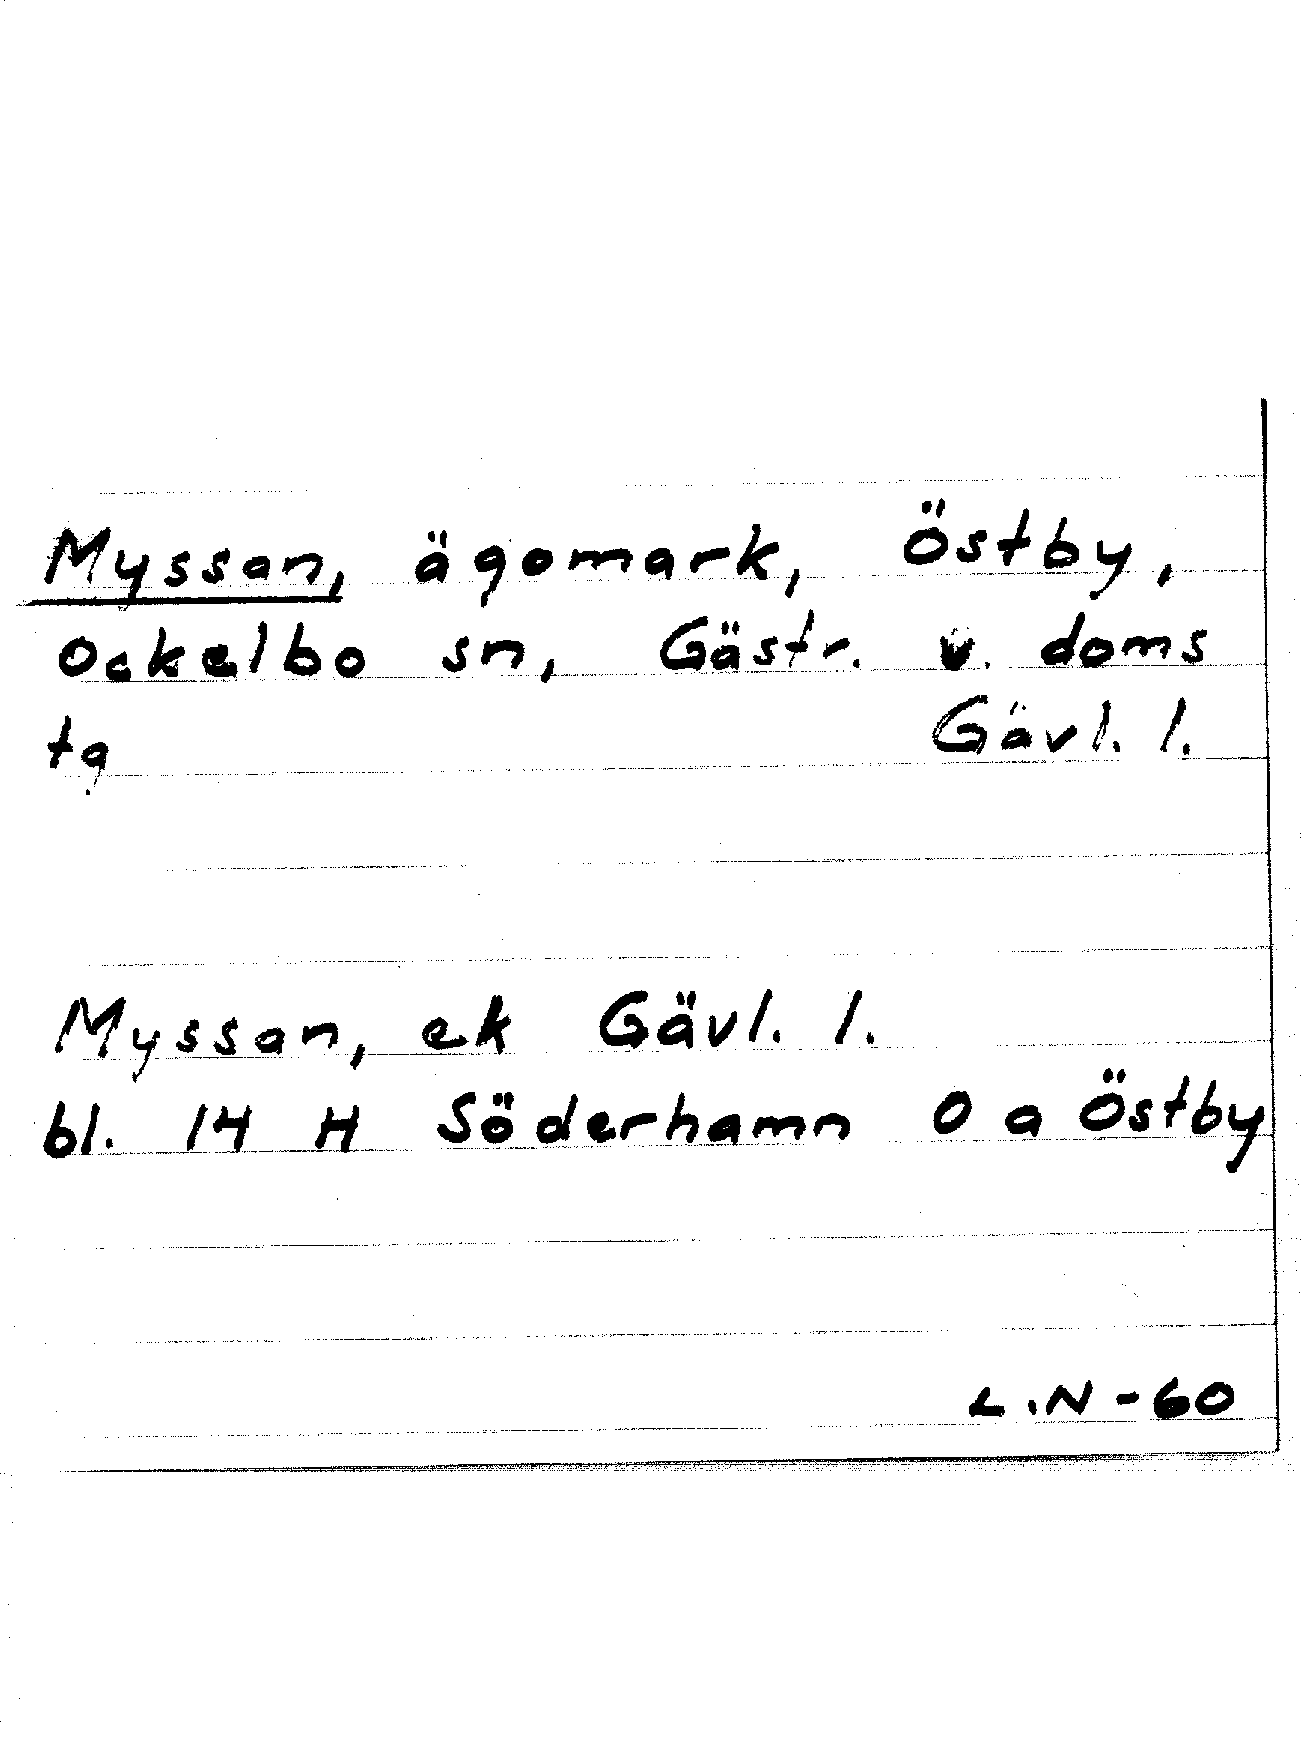 Myssan, ägomark, Östby,
Ockelbo sn, Gästr. v. doms
tg Gävl. l.
Myssan, ek Gävl. l.
bl. 14 H Söderhamn O a Östby
L.N - 60